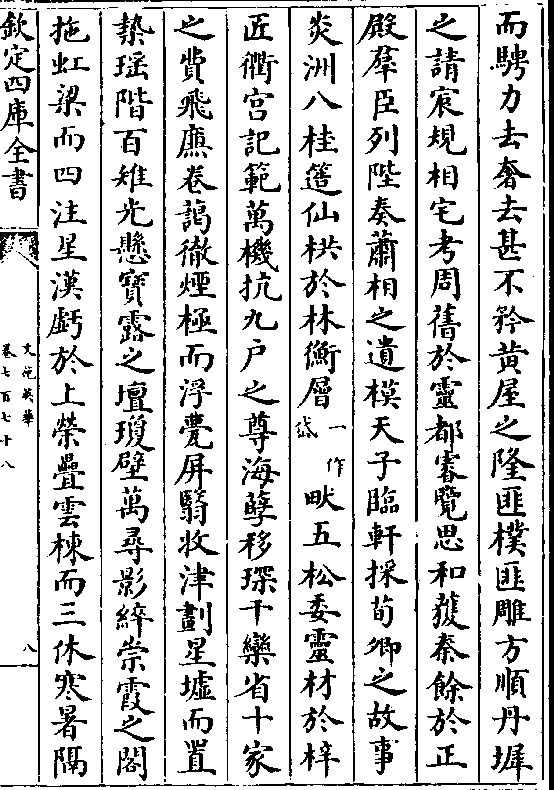 而騁力去奢去甚不矜黃屋之隆匪樸匪雕方順丹墀
之請宸規相宅考周舊於靈都睿覽思和蒦秦餘於正
殿羣臣列陛奏蕭相之遺模天子臨軒採荀卿之故事
炎洲八桂簉仙栱於林衡層一作岱畎五松委靈材於梓
匠衢宮記範萬機抗九户之尊海孽移琛千欒省十家
之費飛廡卷藹徹煙極而浮甍屏翳收津劃星墟而置
埶瑶階百雉光懸寶露之壇瓊壁萬尋影綷崇霞之閣
拖虹梁而四注星漢虧於上榮疊雲棟而三休寒暑隔
欽定四庫全書
文苑英華
卷七百七十八
八